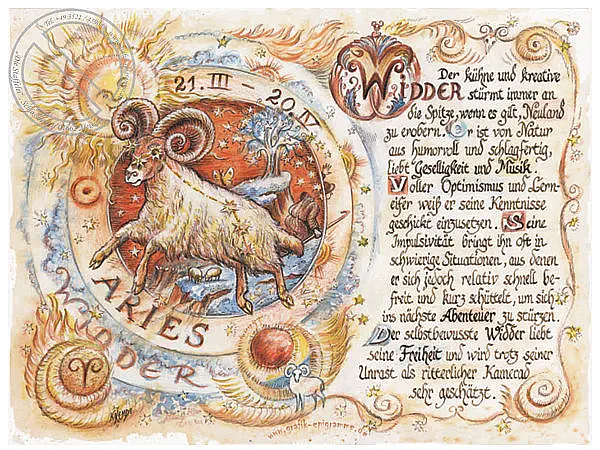 21. III – 20. IV
ARIES
WIDDER
WIDDER
Der kühne und kreative
stürmt immer an
die Spitze, wenn es gilt, Neuland
zu erobern. Er ist von Natur
aus humorvoll und schlagfertig,
liebt Geselligkeit und Musik.
Voller Optimismus und Lern-
eifer weiß er seine Kenntnisse
geschickt einzusetzen. Seine
Impulsivität bringt ihn oft in
schwierige Situationen, aus denen
er sich jedoch relativ schnell be-
freit und kurz schüttelt, um sich
ins nächste Abenteuer zu stürzen.
Der selbstbewusste Widder liebt
seine Freiheit und wird trotz seiner
Unrast als ritterlicher Kamerad
sehr geschätzt.
www.grafik-epigramme.de